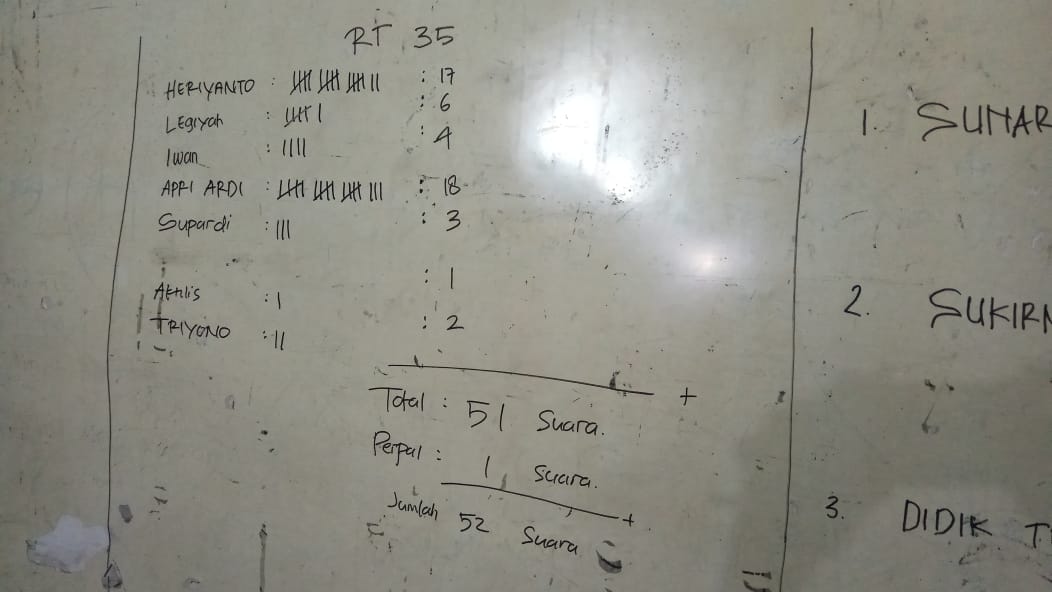 RT 35
HERIYANTO : 𝍸 𝍸 𝍸 || : 17
Legiyah : 𝍸 | : 6
Iwan : |||| : 4
APRI ARDI : 𝍸 𝍸 𝍸 ||| : 18
Supardi : ||| : 3
Akhlis : | : 1
TRIYONO : || : 2
+
Total : 51 Suara.
Perpal : 1 Suara.
+
Jumlah 52 Suara
1. SUMAR
2. SUKIRN
3. DIDIK T